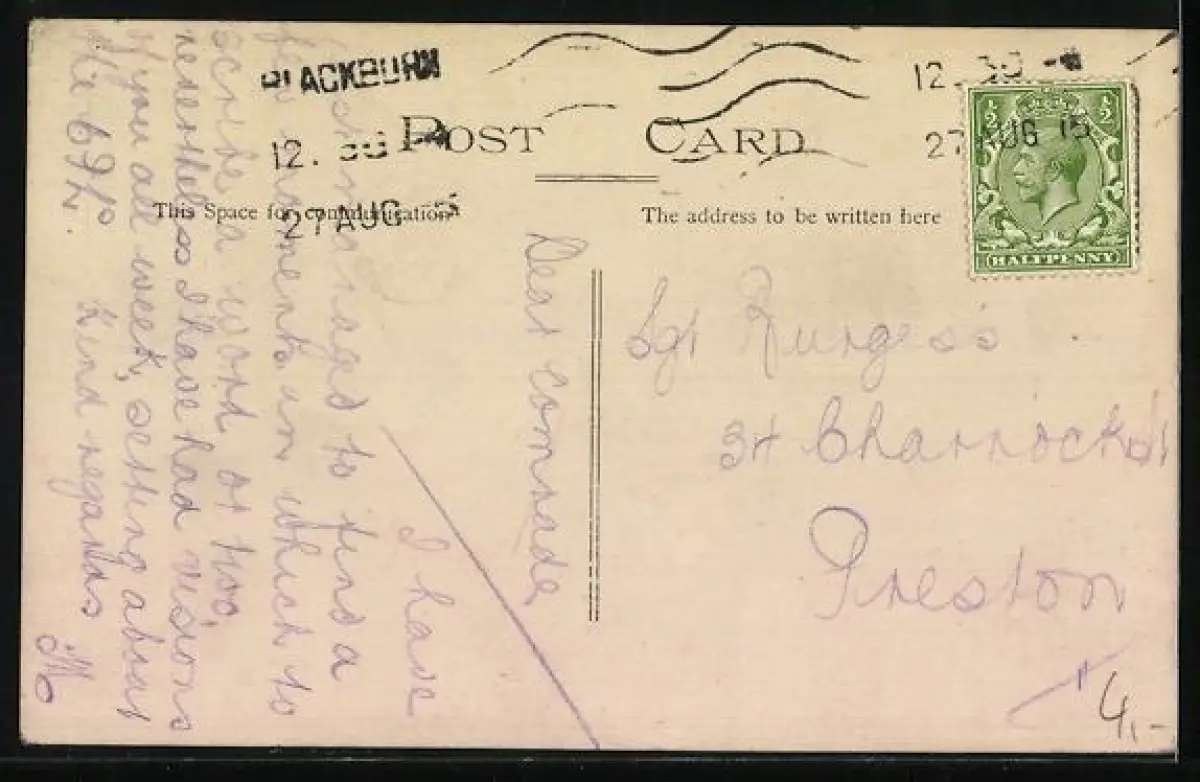 BLACKBURN
12. 30
27 AUG 15
12. 30
27 AUG 15
POST CARD
½ ½
HALFPENNY
This Space for communication
The address to be written here
Dear comrade
I have
managed to find a
few moments in which to
scribe a word or two,
nevertheless I have had visions
of you all week, setting about
the 6th.
Kind regards
M
Sgt Burgess
34 Charnock St
Preston
4,-